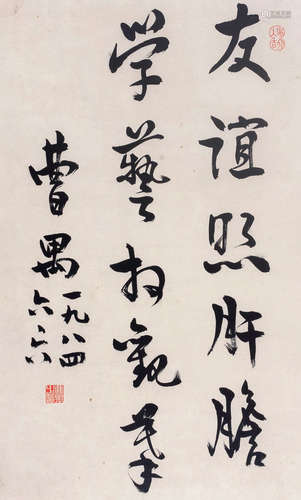 友谊照肝胆
学艺相观摩
曹禺 一九八四
六·六